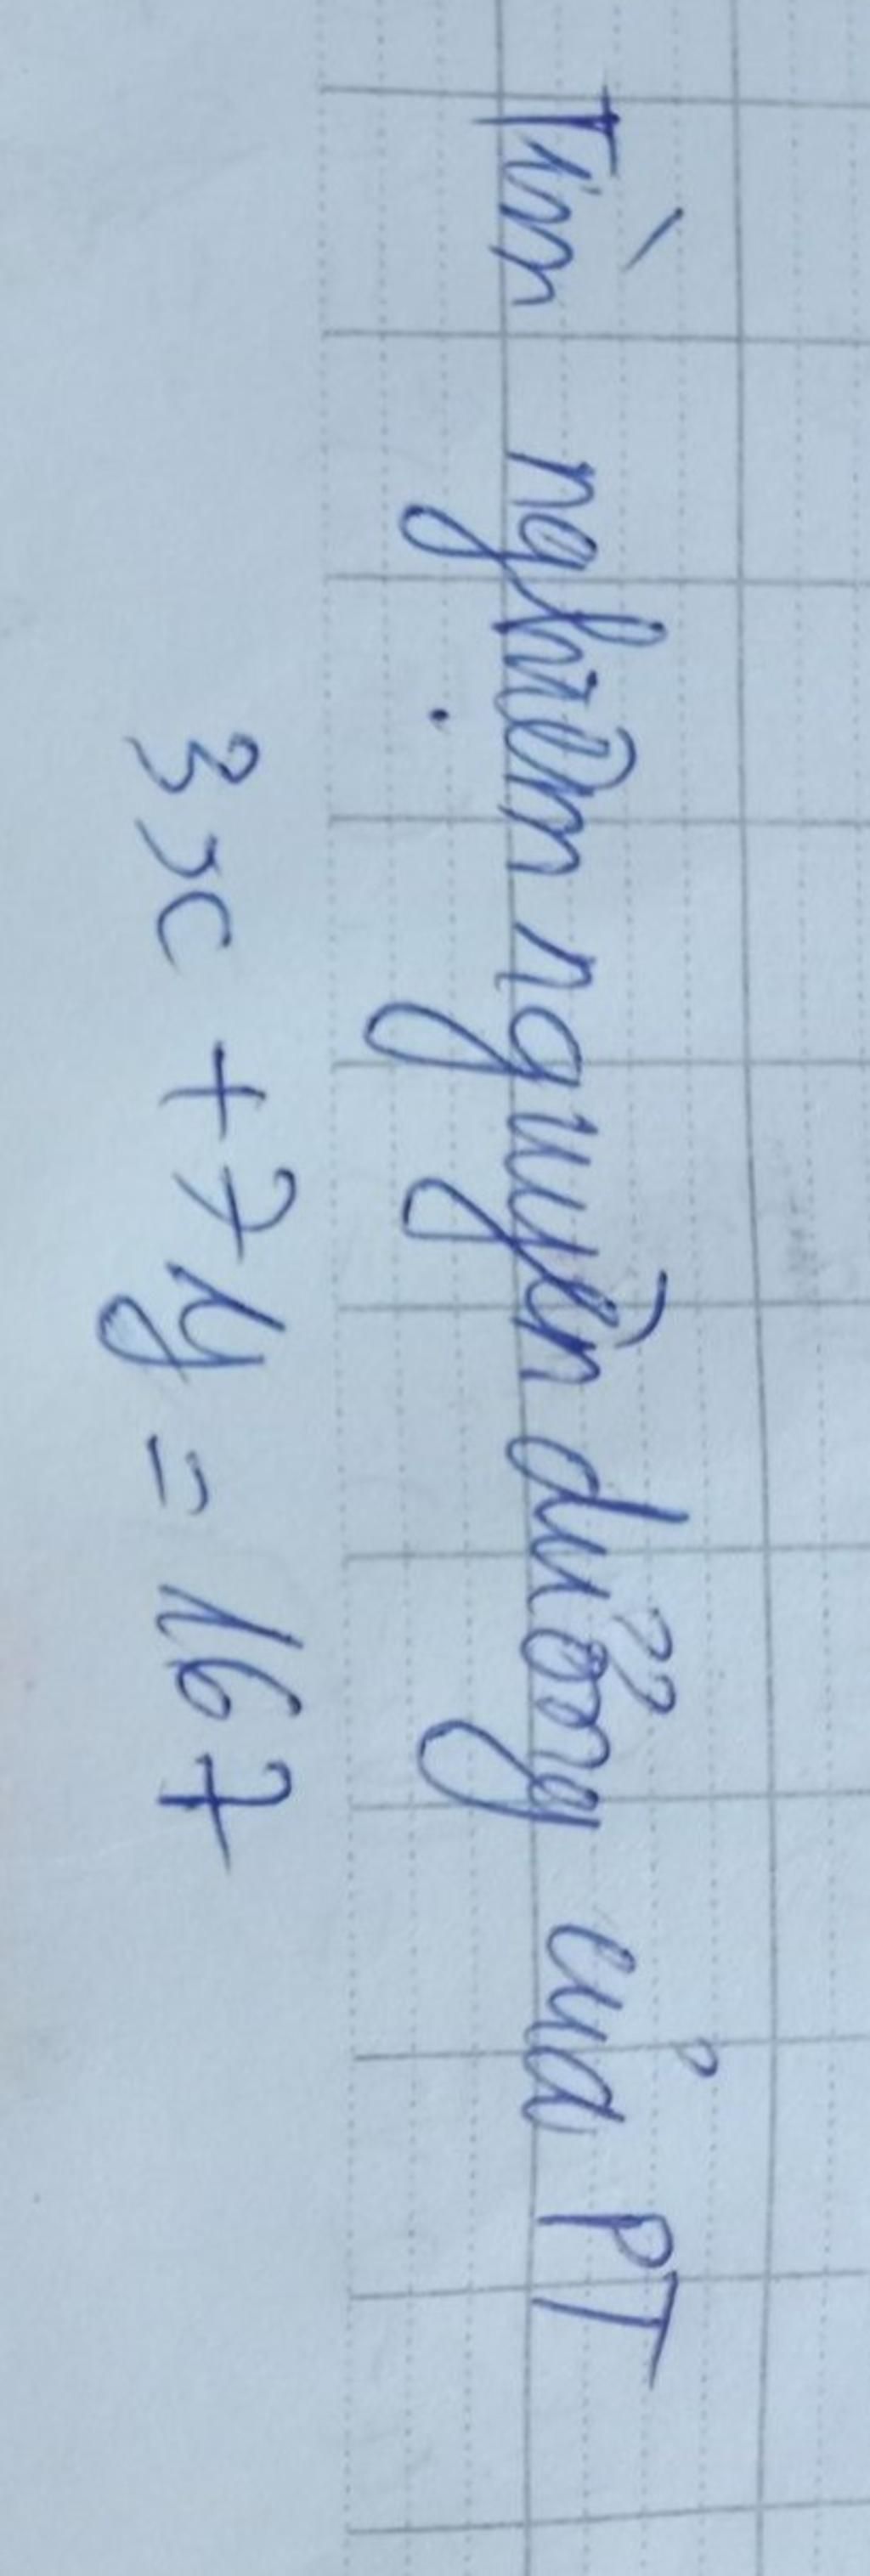 Tìm nghiệm nguyên dương của PT
3x + 7y = 167